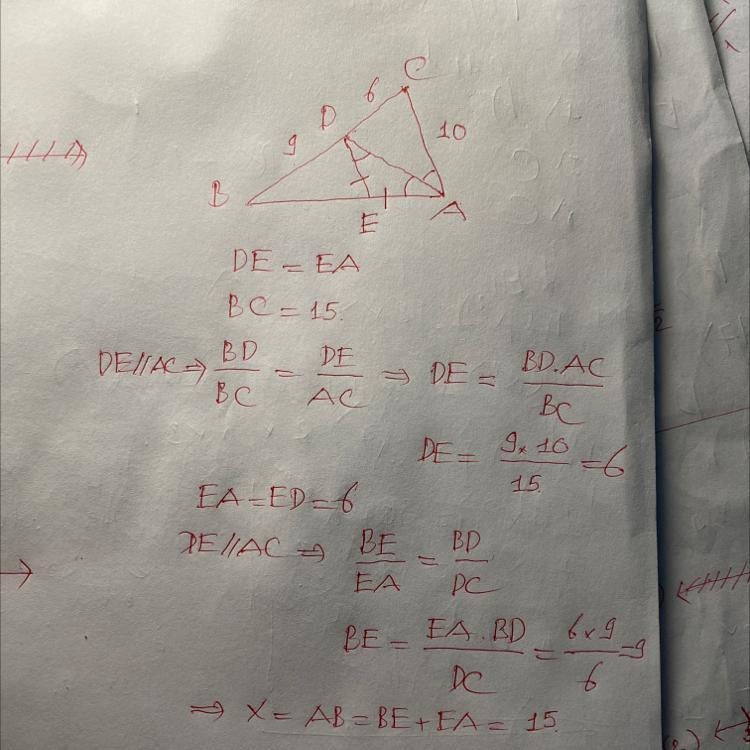 C
6
D
10
9
B
E
A
DE = EA
BC = 15.
DE//AC ⇒ BD/BC = DE/AC ⇒ DE = BD.AC/BC
DE = 9×10/15 = 6
EA = ED = 6
DE//AC ⇒ BE/EA = BD/DC
BE = EA.BD/DC = 6×9/6 = 9
⇒ X = AB = BE + EA = 15